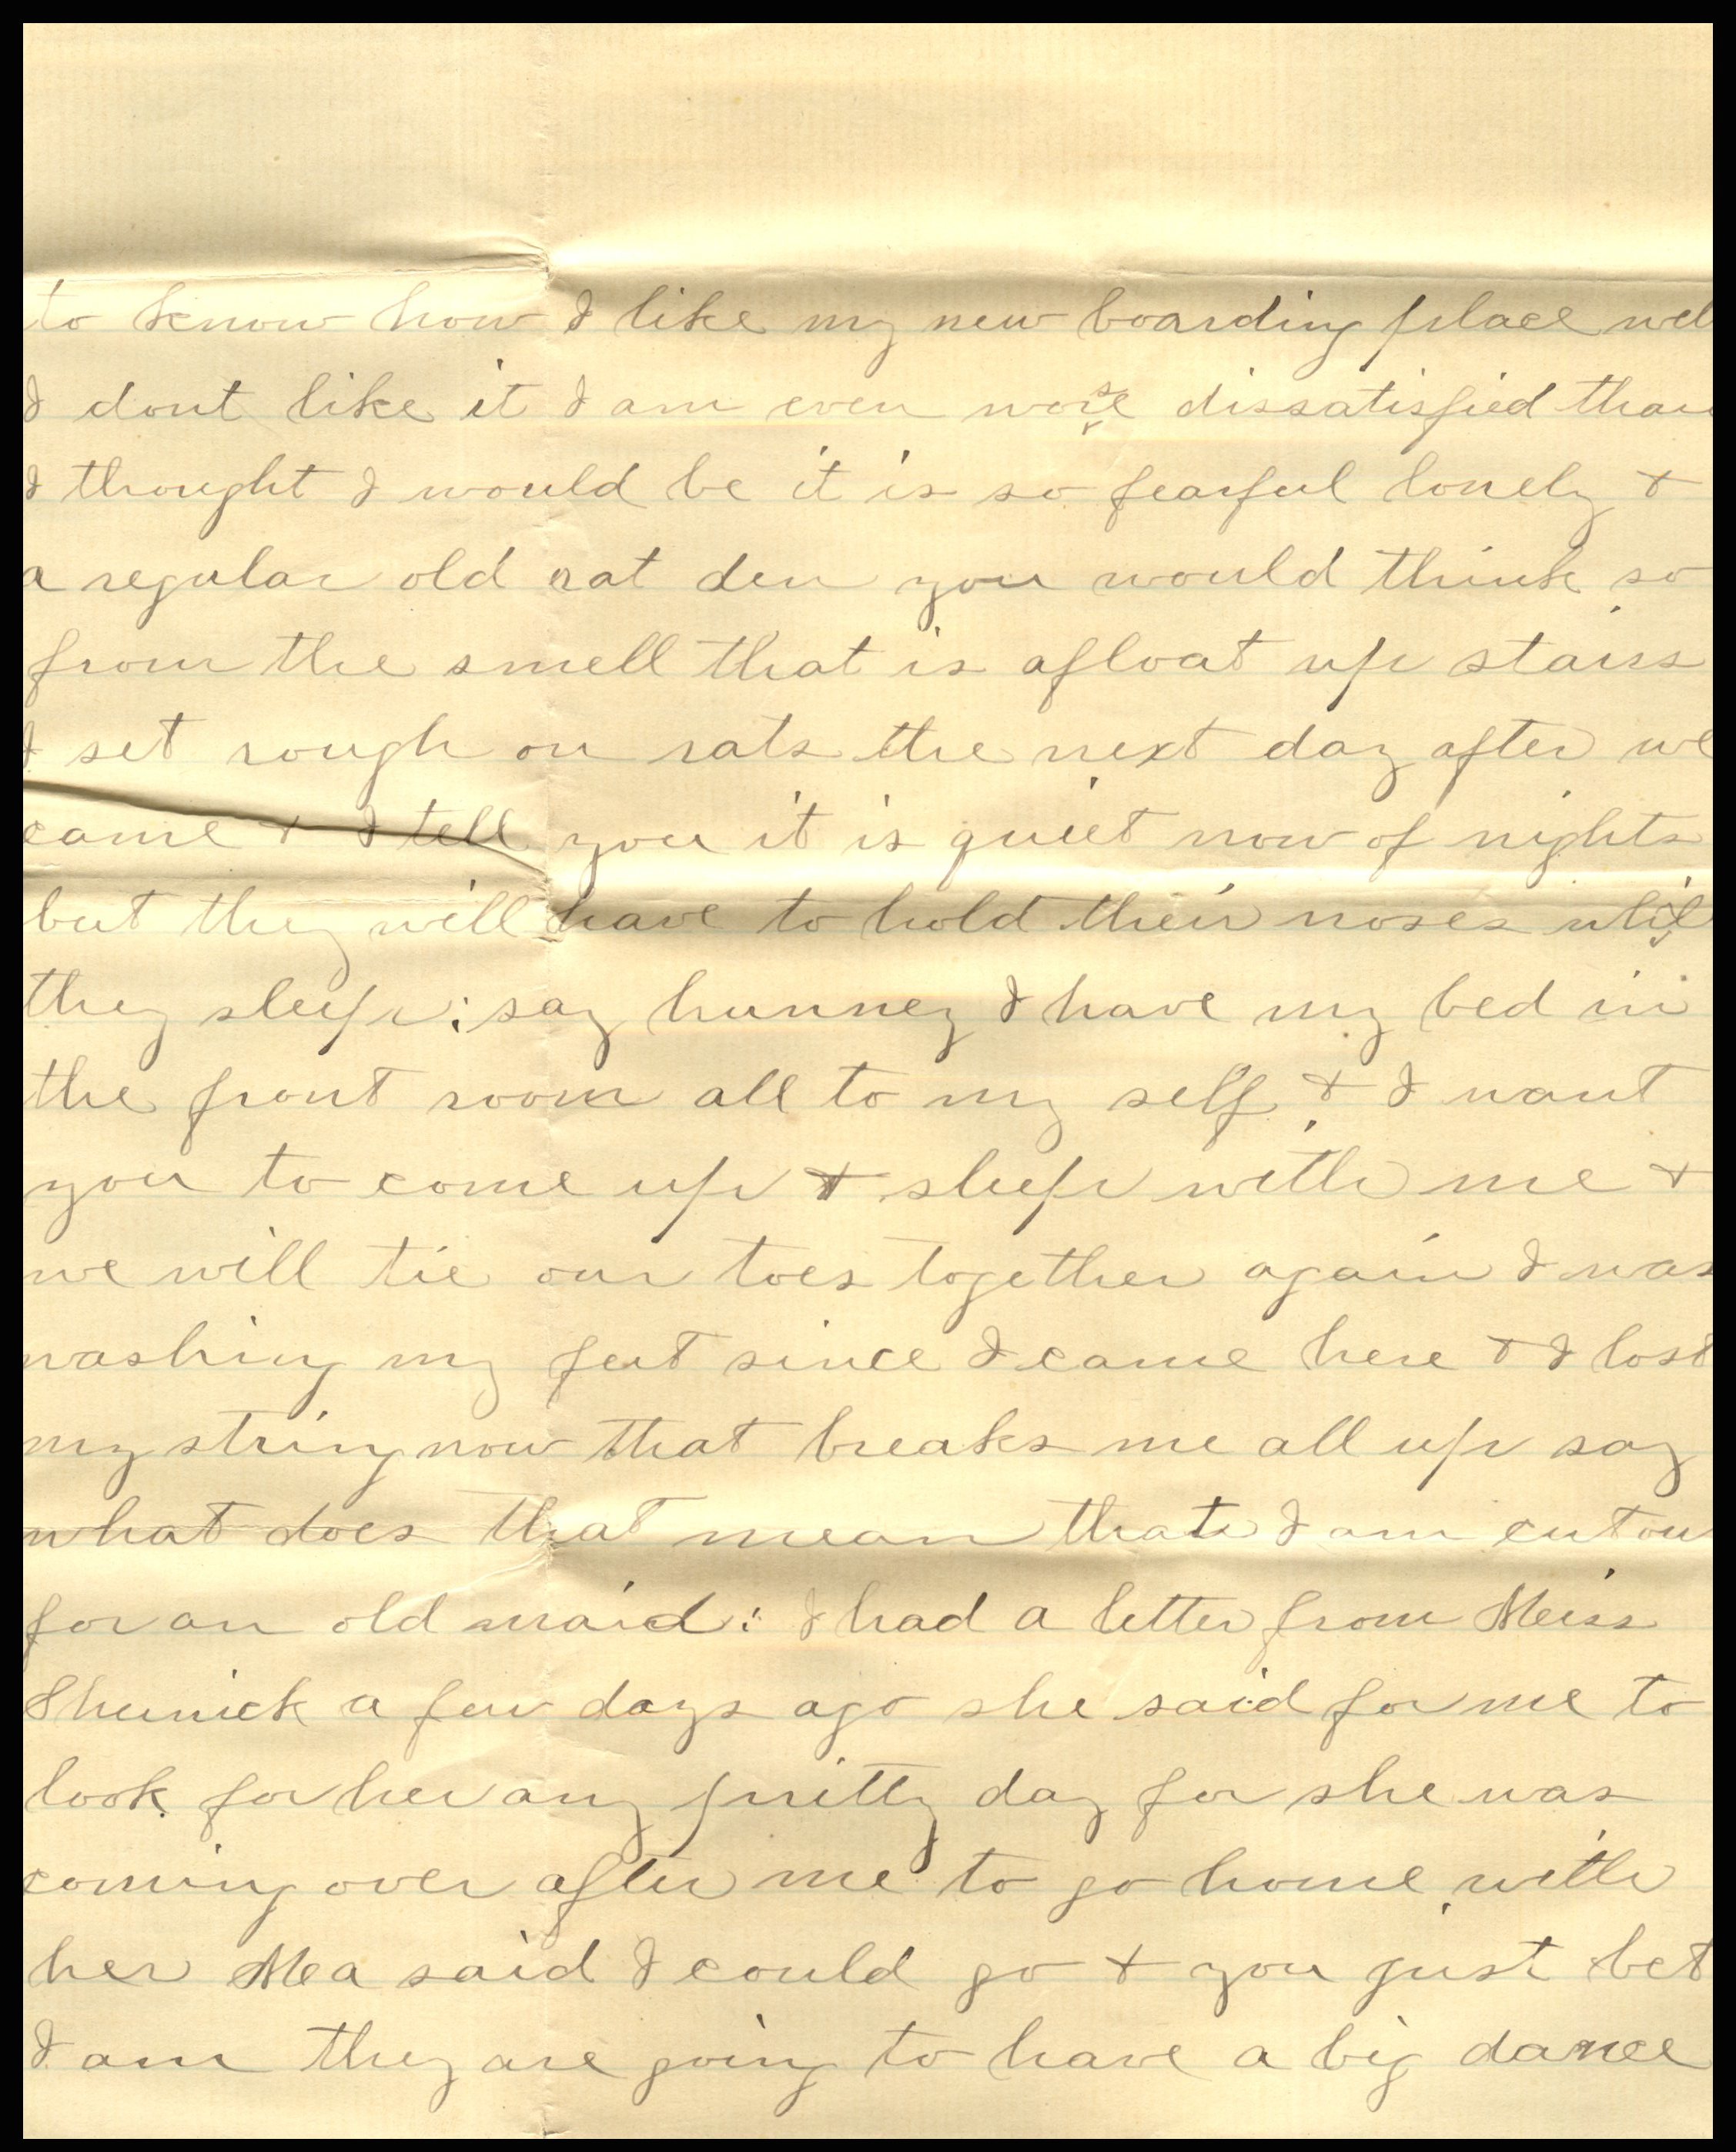 to know how I like my new boarding place wel
I dont like it I am even worse dissatisfied than
I thought I would be it is so fearful lonely +
a regular old rat den you would think so
from the smell that is afloat up stairs
I set rough on rats the next day after we
came + I tell you it is quiet now of nights
but they will have to hold their noses while
they sleep: say hunney I have my bed in
the front room all to my self + I want
you to come up + sleep with me +
we will tie our toes together again I was
washing my feet since I came here + I lost
my string now that breaks me all up say
what does that mean that I am cut ou
for an old maid: I had a letter from Miss
Shunick a few days ago she said for me to
look for her any pritty day for she was
coming over after me to go home with
her Ma said I could go + you just bet
I am they are going to have a big dance